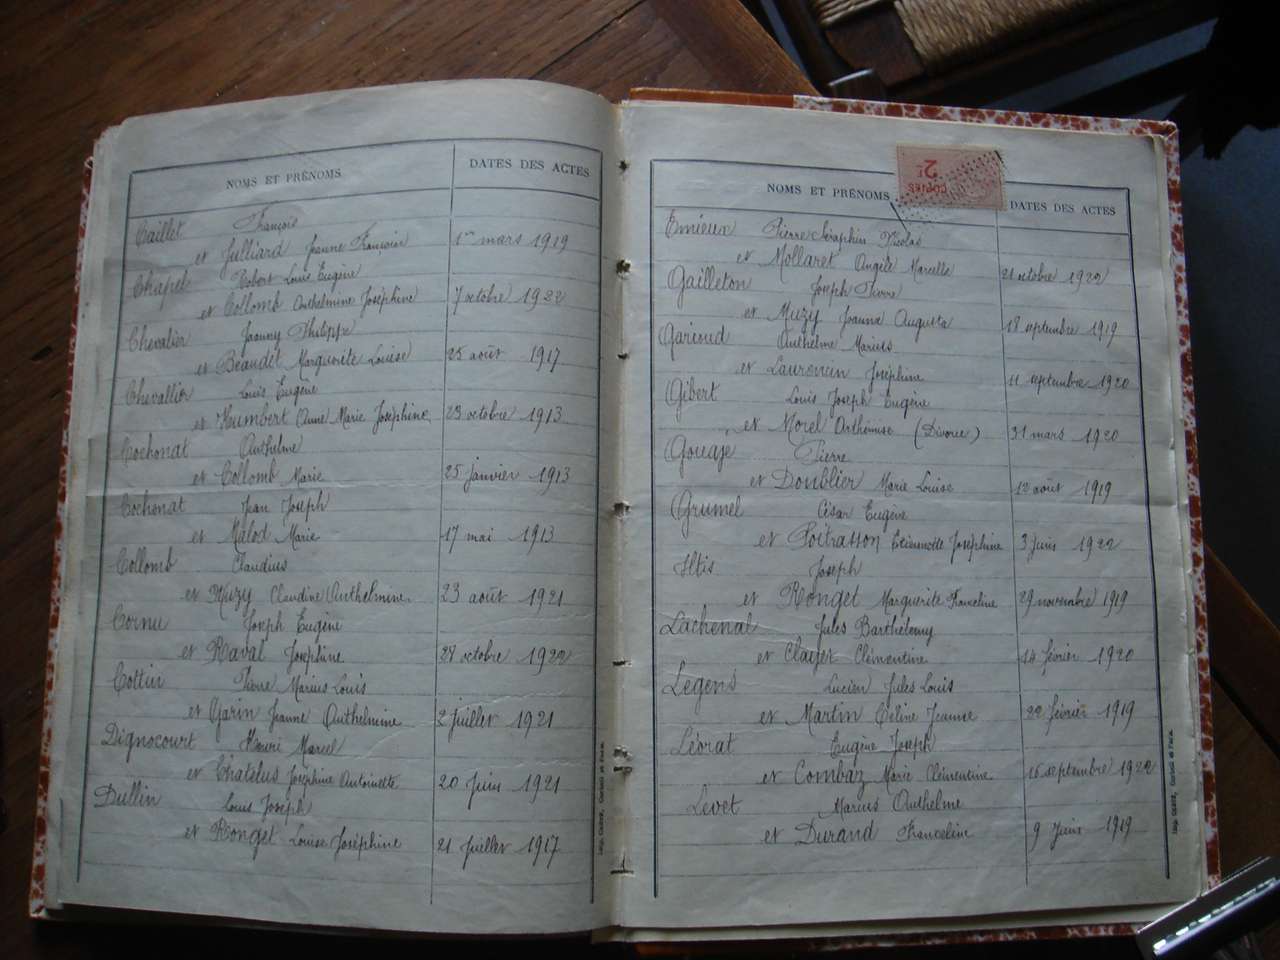 NOMS ET PRÉNOMS DATES DES ACTES
Caillet François
et Julliard Jeanne Françoise 1er mars 1919
Chapel Robert Louis Eugène
et Collomb Anthelmine Joséphine 7 octobre 1922
Chevalier Joanny Philippe
et Beaudet Marguerite Louise 25 août 1917
Chevallier Louis Eugène
et Humbert Anne Marie Joséphine 23 octobre 1913
Cochonat Anthelme
et Collomb Marie 25 janvier 1913
Cochonat Jean Joseph
et Malod Marie 17 mai 1913
Collomb Claudius
et Muzy Claudine Anthelmine 23 août 1921
Cornu Joseph Eugène
et Raval Joséphine 28 octobre 1922
Cottin Pierre Marius Louis
et Garin Jeanne Anthelmine 2 juillet 1921
Dignocourt Henri Marcel
et Chatelus Joséphine Antoinette 20 juin 1921
Dullin Louis Joseph
et Ronget Louise Joséphine 21 juillet 1917
NOMS ET PRÉNOMS DATES DES ACTES
COPIES 2
Emieux Pierre Séraphin Nicolas
et Mollaret Angèle Marcelle 21 octobre 1922
Gailleton Joseph Pierre
et Muzy Joanna Augusta 18 septembre 1919
Garioud Anthelme Marius
et Laurencin Joséphine 11 septembre 1920
Gibert Louis Joseph Eugène
et Morel Orthémise (Divorce) 31 mars 1920
Gouage Pierre
et Doublier Marie Louise 12 août 1919
Grumel César Eugène
et Poitrasson Etiennette Joséphine 3 juin 1922
Iltis Joseph
et Ronget Marguerite Franceline 29 novembre 1919
Lachenal Jules Barthélemy
et Clayet Clémentine 14 février 1920
Legens Lucien Jules Louis
et Martin Céline Jeanne 22 février 1919
Léorat Eugène Joseph
et Combaz Marie Clémentine 16 septembre 1922
Levet Marius Anthelme
et Durand Franceline 9 Juin 1919